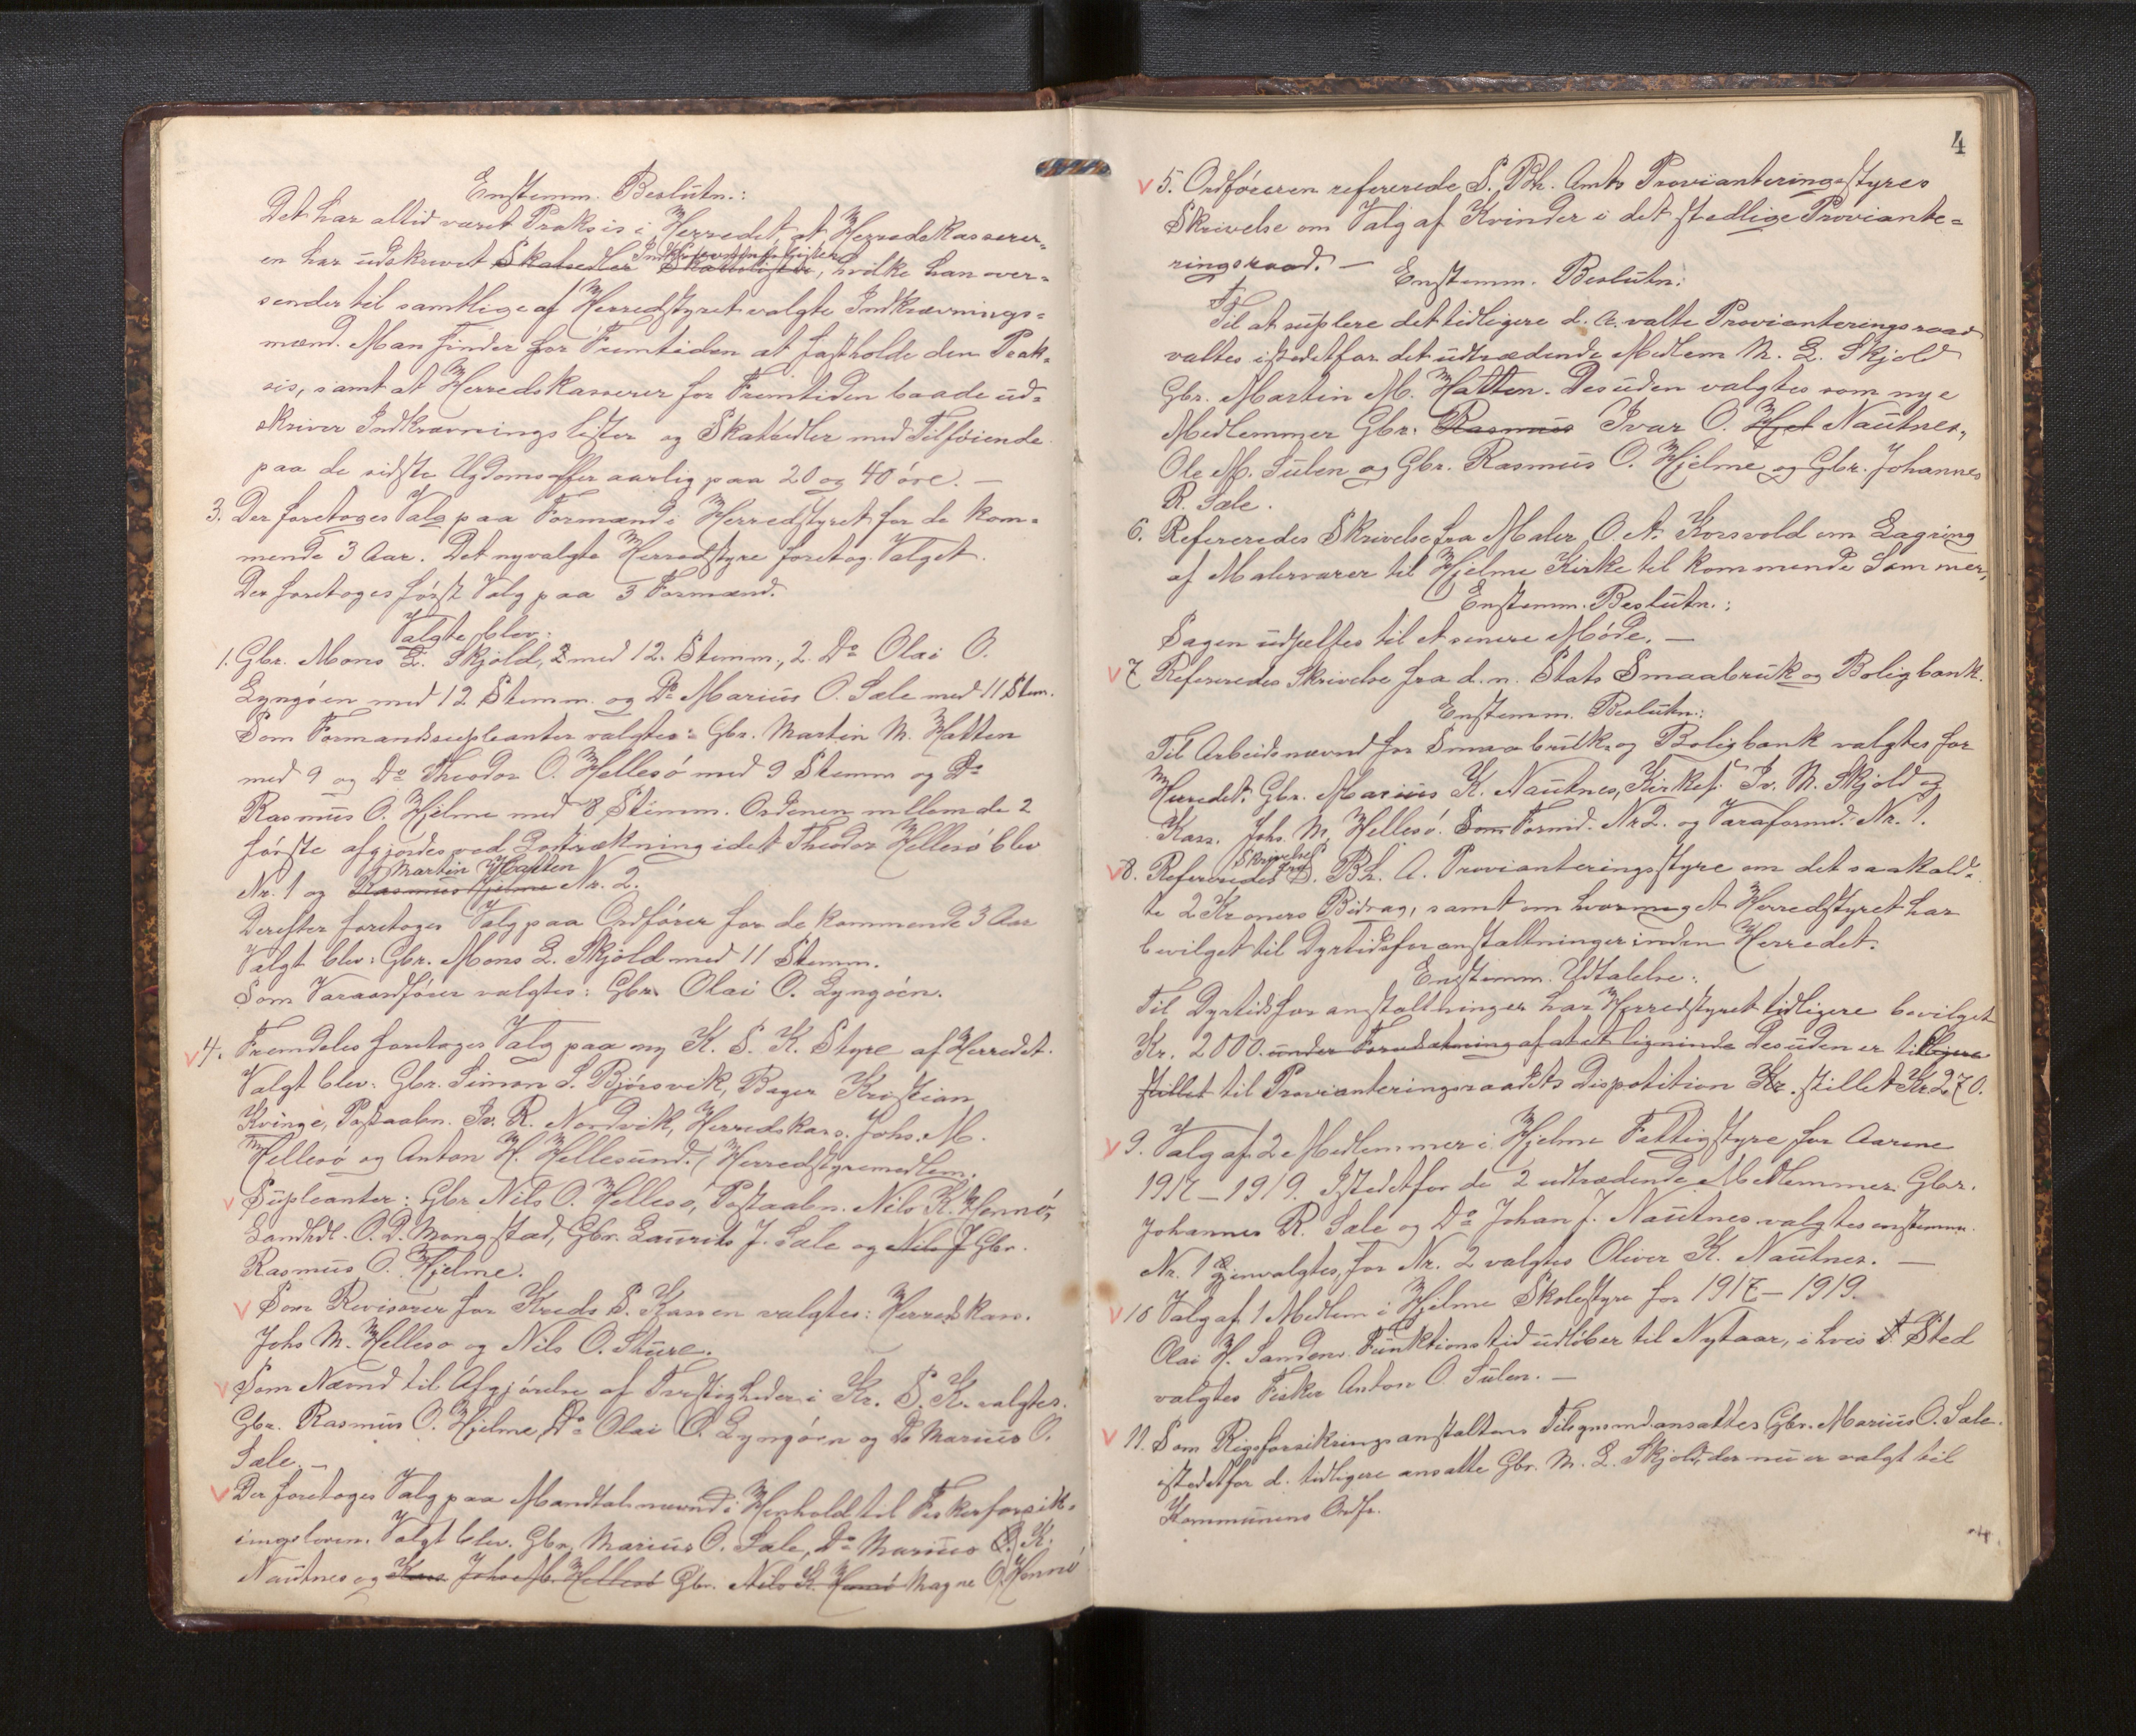 Enstemm. Beslutn.:
Det har altid været Praksis i Herredet at Herredskasserer-
en har udskrevet Skatsedler Indkrævningslister Skattelister, hvilke han over-
sender til samtlige af Herredstyret valgte Indkrævnings-
mænd. Man finder for Fremtiden at fastholde den Prak-
sis, samt at Herredskasserer for Fremtiden baade ud-
skriver Indkrævningslister og Skatsedler med Tilføiende
paa de sidste aarlig paa 20 og 40 øre. —
3. Der foretoges Valg paa Formænd i Herredstyret for de kom-
mende 3 Aar. Det nyvalgte Herredstyre foretog Valget.
Der foretoges først Valg paa 3 Formænd.
Valgte blev:
1. Gbr. Mons L. Skjold, med 12. Stemm., 2. Do Olai O.
Lyngøen med 12 Stemm. og Do Marius O. Sæle med 11 Stem.
Som Formandssupleanter valgtes: Gbr. Martin M. Hatten
med 9 og Do Theodor O. Hellesø med 9 Stemm og Do
Rasmus O. Hjelme med 8 Stemm. Ordenen mellem de 2
første afgjordes ved Lodtrækning idet Theodor Hellesø blev
Nr. 1 og Martin Hatten Rasmus Hjelme Nr. 2.
Derefter foretoges Valg paa Ordfører for de kommende 3 Aar
Valgt blev: Gbr. Mons L. Skjold med 11 Stemm.
Som Varaordfører valgtes: Gbr. Olai O. Lyngøen.
4. Fremdeles foretoges Valg paa ny K. S. K. Styre af Herredet.
Valgt blev: Gbr. Simon S. Bjørsvik, Bager Kristian
Kvinge, Postaabn. Iv. R. Nordvik, Herredskass. Johs. M.
Hellesø og Anton H. Hellesund. (Herredstyremedlem.
Supleanter: Gbr. Nils O. Hellesø, Postaabn. Nils K. Hennø,
Landhdl. O. D. Mongstad, Gbr. Laurits J. Sæle og Nils J Gbr.
Rasmus O. Hjelme.
Som Revisorer for Kreds S. Kassen valgtes: Herredskass.
Johs M. Hellesø og Nils O. Sture.
Som Nævnd til Afgjørelse af Tvistigheder i Kr. S. K. valgtes.
Gbr. Rasmus O. Hjelme, Do Olai O. Lyngøen og Do Marius O.
Sæle. —
Der foretoges Valg paa Mandtalsnævnd i Henhold til Fiskerforsik-
ringsloven. Valgt blev. Gbr. Marius O. Sæle, Do Marius K.
Nautnes og Kass Johs M. Hellesø Gbr. Nils K. Hennø Magne O. Hennø
4
5. Ordføreren refererede S. Bh. Amts Provianteringsstyres
Skrivelse om Valg af Kvinder i det stedlige Proviante-
ringsraad. —
Enstemm. Beslutn:
Til at suplere det tidligere d. A. valte Provianteringsraad
valtes istedetfor det udtrædende Medlem M. L. Skjold
Gbr. Martin M. Hatten. Desuden valgtes som nye
Medlemmer Gbr. Rasmus Ivar O. Hjel Nautnes,
Ole M. Sulen og Gbr. Rasmus O. Hjelme og Gbr. Johannes
R. Sæle.
6. Refereredes Skrivelse fra Maler O. A. Korsvold om Lagring
af Malervarer til Hjelme Kirke til kommende Sommer,
Enstemm. Beslutn.:
Sagen udsættes til et senere Møde. —
7. Refereredes Skrivelse fra d. n. Stats Smaabruk og Boligbank.
Enstemm. Beslutn.:
Til Arbeidsnævnd for Smaabruk- og Boligbank valgtes for
Herredet. Gbr. Marius K. Nautnes, Kirkes. Iv. M. Skjold og
Kass. Johs. M. Hellesø. Som Formd. Nr 2. og Varaformd. Nr. 1.
8. Refereredes Skrivelse fra S. Bh. A. Provianteringsstyre om det saakald-
te 2 Kroners Bidrag, samt om hvormeget Herredstyret har
bevilget til Dyrtidsforanstaltninger inden Herredet.
Enstemm. Udtalelse:
Til Dyrtidsforanstaltninger har Herredstyret tidligere bevilget
Kr. 2000. under Forudsætning af at et lignende Desuden er tidligere
stillet til Provianteringsraadets Dispotition Kr. stillet Kr. 270.
9. Valg af 2 Medlemmer i Hjelme Fattigstyre for Aarene
1917 – 1919. Istedetfor de 2 udtrædende Medlemmer Gbr.
Johannes R. Sæle og Do Johan J. Nautnes valgtes enstemm.
Nr. 1 gjenvalgtes, for Nr. 2 valgtes Oliver K. Nautnes. —
10 Valg af 1 Medlem i Hjelme Skolestyre for 1917 – 1919.
Olai H. Sandens Funktionstid udløber til Nytaar, i hvis Sted
valgtes Fisker Anton O. Sulen. —
11. Som Rigsforsikringsanstaltens Tilsynsmd. ansattes Gbr. Marius O. Sæle.
istedetfor d. tidligere ansatte Gbr. M. L. Skjold, der nu er valgt til
Kommunens Ordfr.